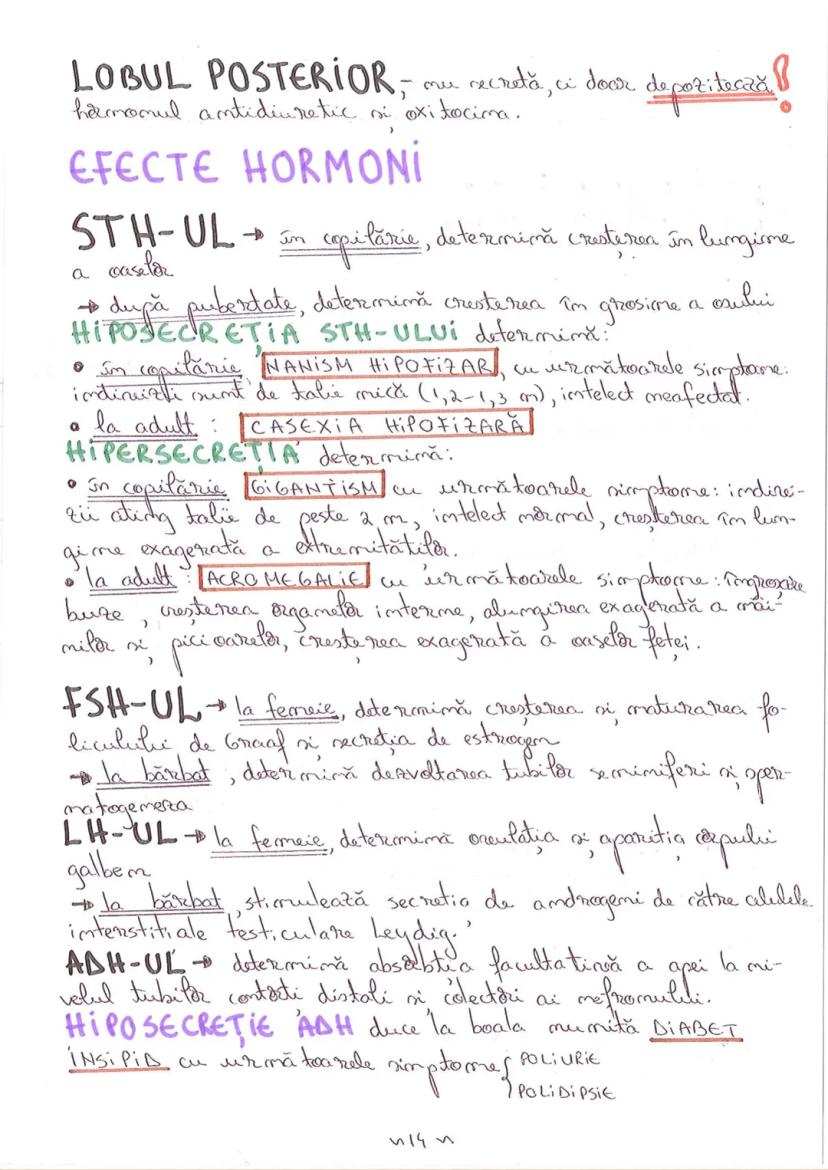 LOBUL POSTERIOR,- nu secretă, ci doar depozitează!
hormonul antidiuretic și oxitocina.
EFECTE HORMONI
STH-UL → în copilărie, determină creșterea în lungime
a oaselor
→ după pubertate, determină creșterea în grosime a osului
HIPOSECREȚIA STH-ULUI determină:
• în copilărie NANISM HIPOFIZAR, cu următoarele simptome:
indivizii sunt de talie mică (1,2-1,3 m), intelect neafectat.
• la adult : CASEXIA HIPOFIZARĂ
HIPERSECREȚIA determină:
• în copilărie GIGANTISM cu următoarele simptome: indivi-
zii ating talie de peste 2 m, intelect normal, creșterea în lun-
gime exagerată a extremităților.
• la adult : ACROMEGALIE cu următoarele simptome: îngroșare
buze, creșterea organelor interne, alungirea exagerată a mâi-
nilor și picioarelor, creșterea exagerată a oaselor feței.
FSH-UL → la femeie, determină creșterea și maturarea fo-
liculului de Graaf și secreția de estrogen
→ la bărbat, determină dezvoltarea tubilor seminiferi și sper-
matogeneza
LH-UL → la femeie, determină ovulația și apariția corpului
galben
→ la bărbat, stimulează secreția de androgeni de către celulele
interstițiale testiculare Leydig.
ADH-UL → determină absorbția facultativă a apei la ni-
velul tubilor contorți distali și colectori ai nefronului.
HIPOSECREȚIE ADH duce la boala numită DIABET
INSIPID cu următoarele simptome { POLIURIE
POLIDIPSIE
~14~